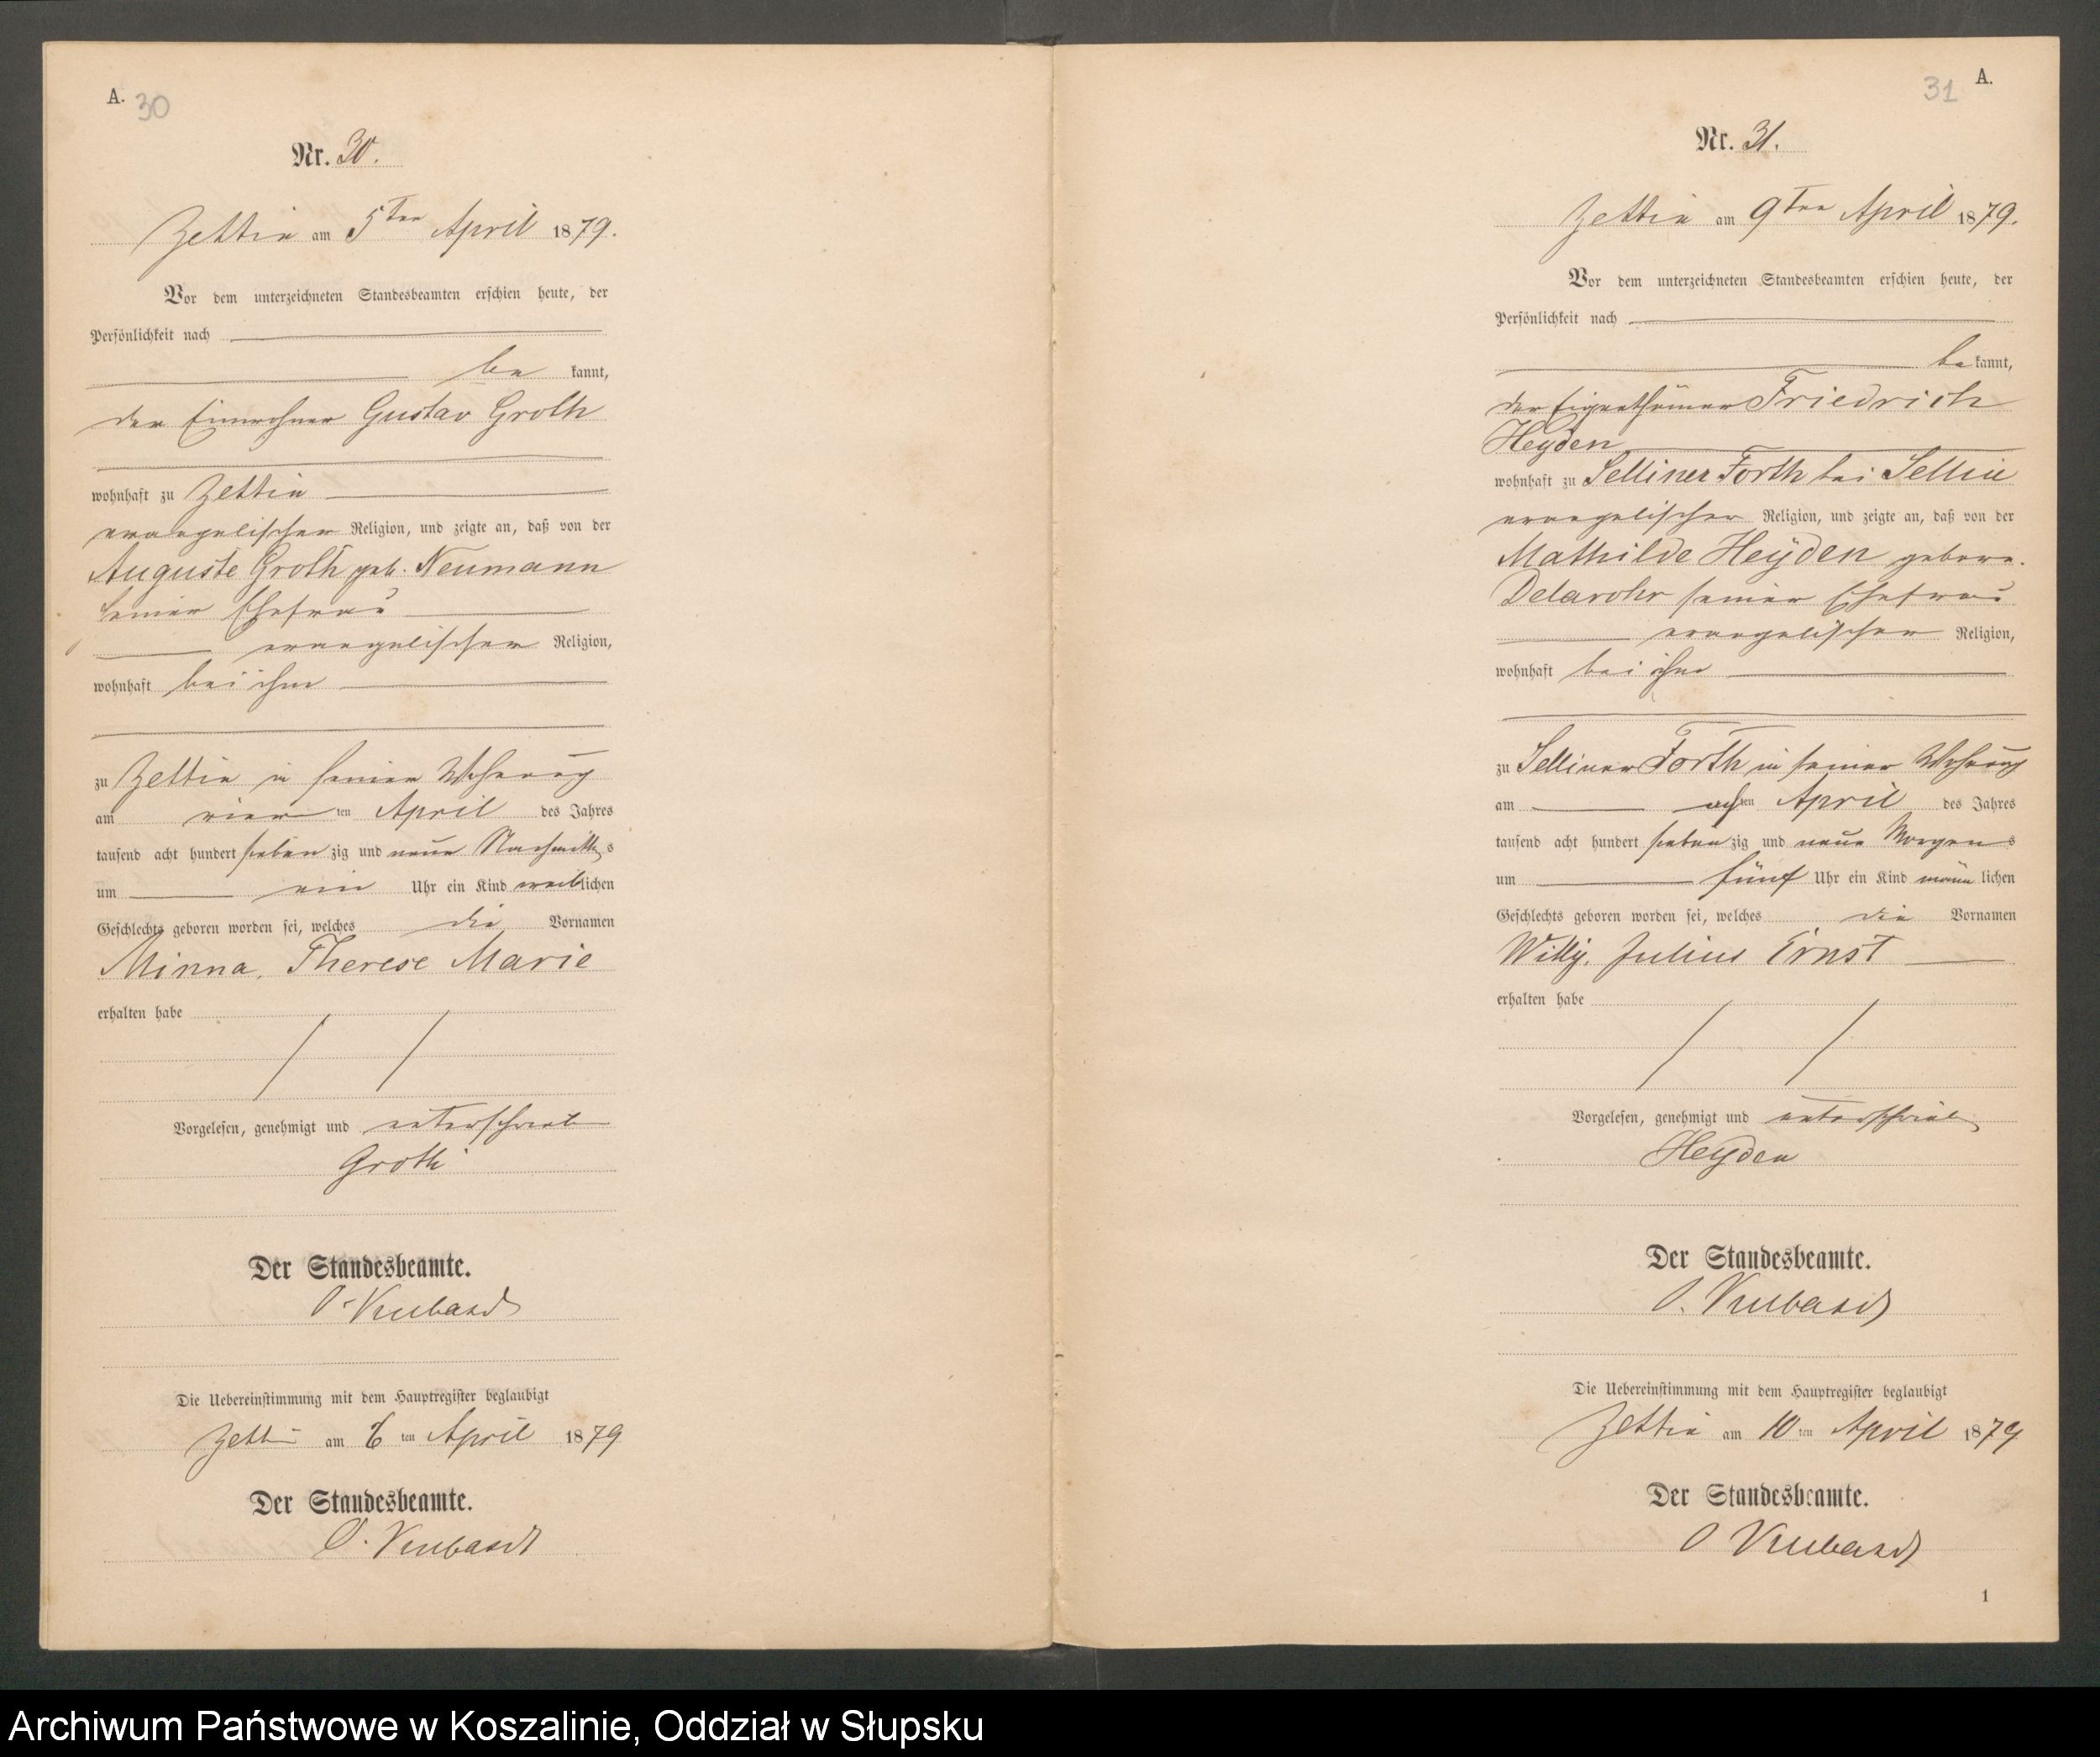 A. 30
Nr. 30.
Zettin am 5ten April 1879.
Vor dem unterzeichneten Standesbeamten erschien heute, der
Persönlichkeit nach
be kannt,
der Einwohner Gustav Groth
wohnhaft zu Zettin
evangelischer Religion, und zeigte an, daß von der
Auguste Groth geb. Neumann
seiner Ehefrau
evangelischer Religion,
wohnhaft bei ihm
zu Zettin in seiner Wohnung
am vier ten April des Jahres
tausend acht hundert sieben zig und neun Nachmittags
um ein Uhr ein Kind weiblichen
Geschlechts geboren worden sei, welches die Vornamen
Minna, Therese Marie
erhalten habe
Vorgelesen, genehmigt und unterschrieben
Groth
Der Standesbeamte.
Die Uebereinstimmung mit dem Hauptregister beglaubigt
Zettin am 6 ten April 1879
Der Standesbeamte.
31 A.
Nr. 31.
Zettin am 9ten April 1879.
Vor dem unterzeichneten Standesbeamten erschien heute, der
Persönlichkeit nach
be kannt,
der Eigenthümer Friedrich
Heyden
wohnhaft zu Selliner Forth bei Sellin
evangelischer Religion, und zeigte an, daß von der
Mathilde Heyden gebore.
Delarohr seiner Ehefrau
evangelischer Religion,
wohnhaft bei ihm
zu Selliner Forth in seiner Wohnung
am achten April des Jahres
tausend acht hundert sieben zig und neun Morgens
um fünf Uhr ein Kind männlichen
Geschlechts geboren worden sei, welches die Vornamen
Willy, Julius Ernst
erhalten habe
Vorgelesen, genehmigt und unterschrieben
Heyden
Der Standesbeamte.
Die Uebereinstimmung mit dem Hauptregister beglaubigt
Zettin am 10 ten April 1879
Der Standesbeamte.
1
Archiwum Państwowe w Koszalinie, Oddział w Słupsku